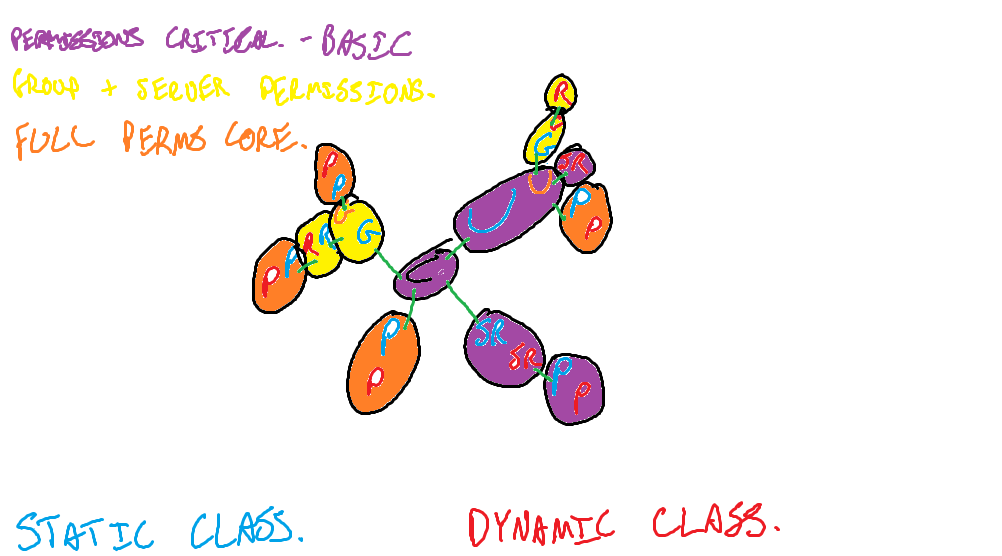 PERMISSIONS CRITICAL. - BASIC
GROUP + SERVER PERMISSIONS.
FULL PERMS CORE.
R
G
SR
U U
P
P
P
P
G
R R
P P
C
P
P
SR
SR
P
P
STATIC CLASS.
DYNAMIC CLASS.